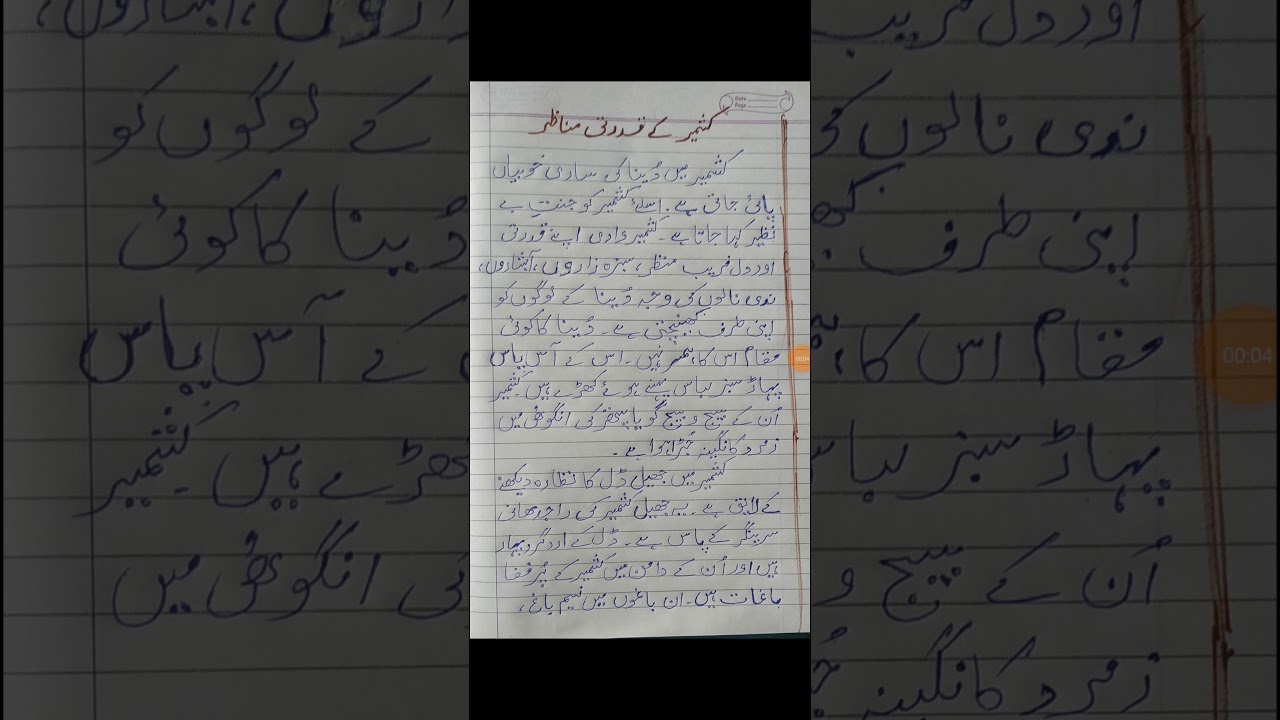 Date
Page
کشمیر کے قدرتی مناظر
کشمیر میں دُینا کی ساری خوبیاں
پائی جاتی ہے۔ اسلئے کشمیر کو جنتِ بے
نظیر کہا جاتا ہے۔ کشمیر وادی اپنے قدرتی
اور دل فریب منظر، سبزہ زاروں، آبشاروں،
ندی نالوں کی وجہ دُینا کے لوگوں کو
اپنی طرف کھینچتی ہے۔ دُینا کا کوئی
مقام اس کا ہمسر نہیں۔ اس کے آس پاس
پہاڑ سبز لباس پہنے ہوئے کھڑے ہیں۔ کشمیر
اُن کے بیچ و بیچ گویا پتھر کی انگوٹھی میں
زمرد کا نگینہ جُڑا ہوا ہے۔
کشمیر میں جھیل ڈل کا نظارہ دیکھنے
کے لایق ہے۔ یہ جھیل کشمیر کی راجدھانی
سرینگر کے پاس ہے۔ ڈل کے اردگرد پہاڑ
ہیں اور اُن کے دامن میں کشمیر کے پُر فضا
باغات ہیں۔ ان باغوں میں نسیم باغ،
00:04